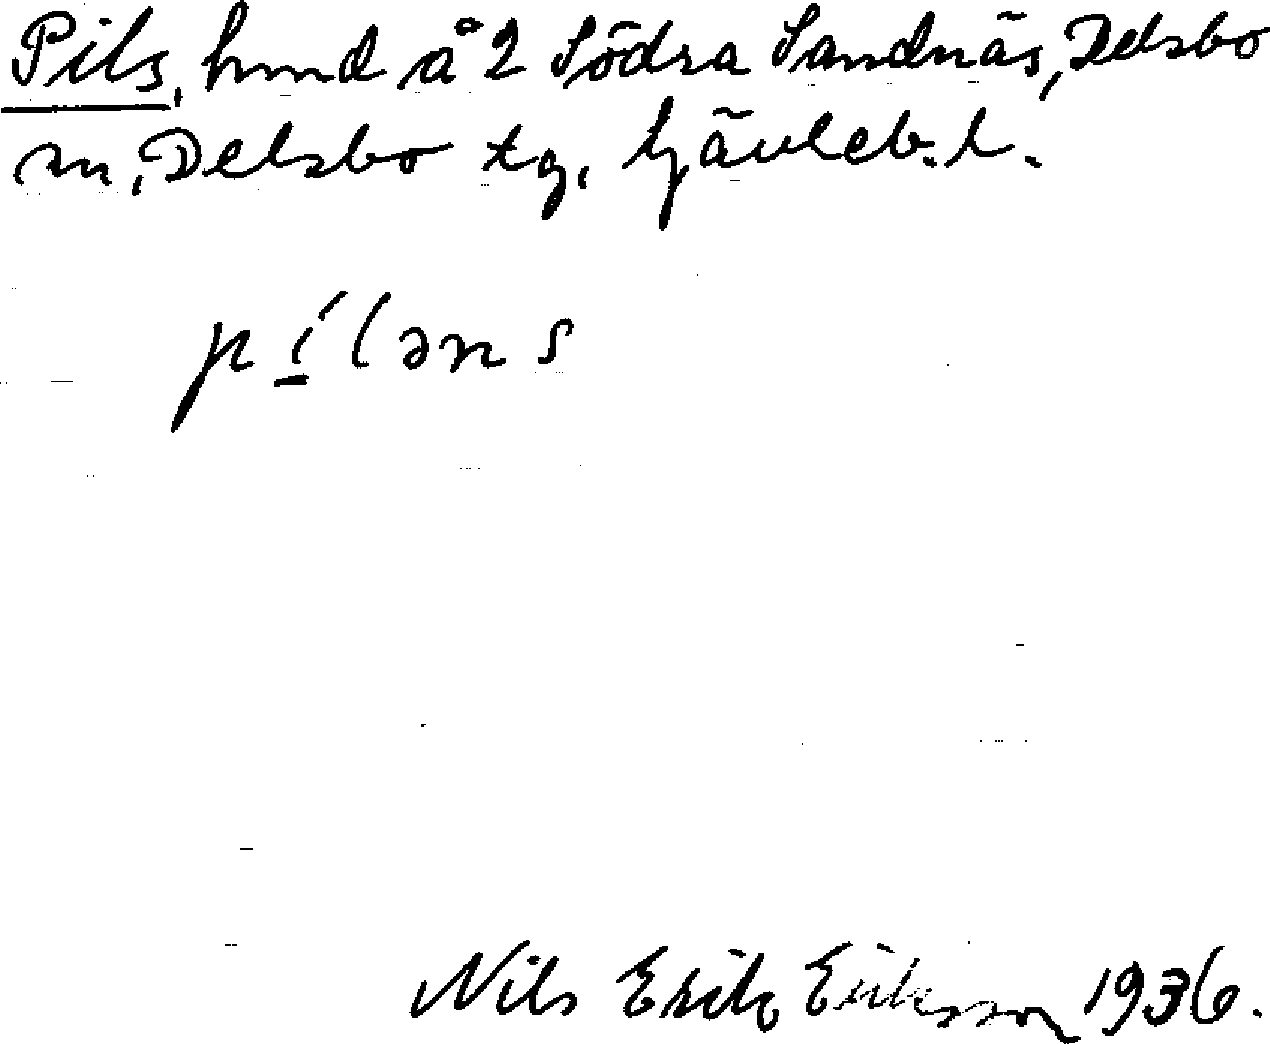 Pils, hmd å 2 Södra Sandnäs, Delsbo
sn, Delsbo tg, Gävleb. l.
pílən s
Nils Erik Eriksson 1936.